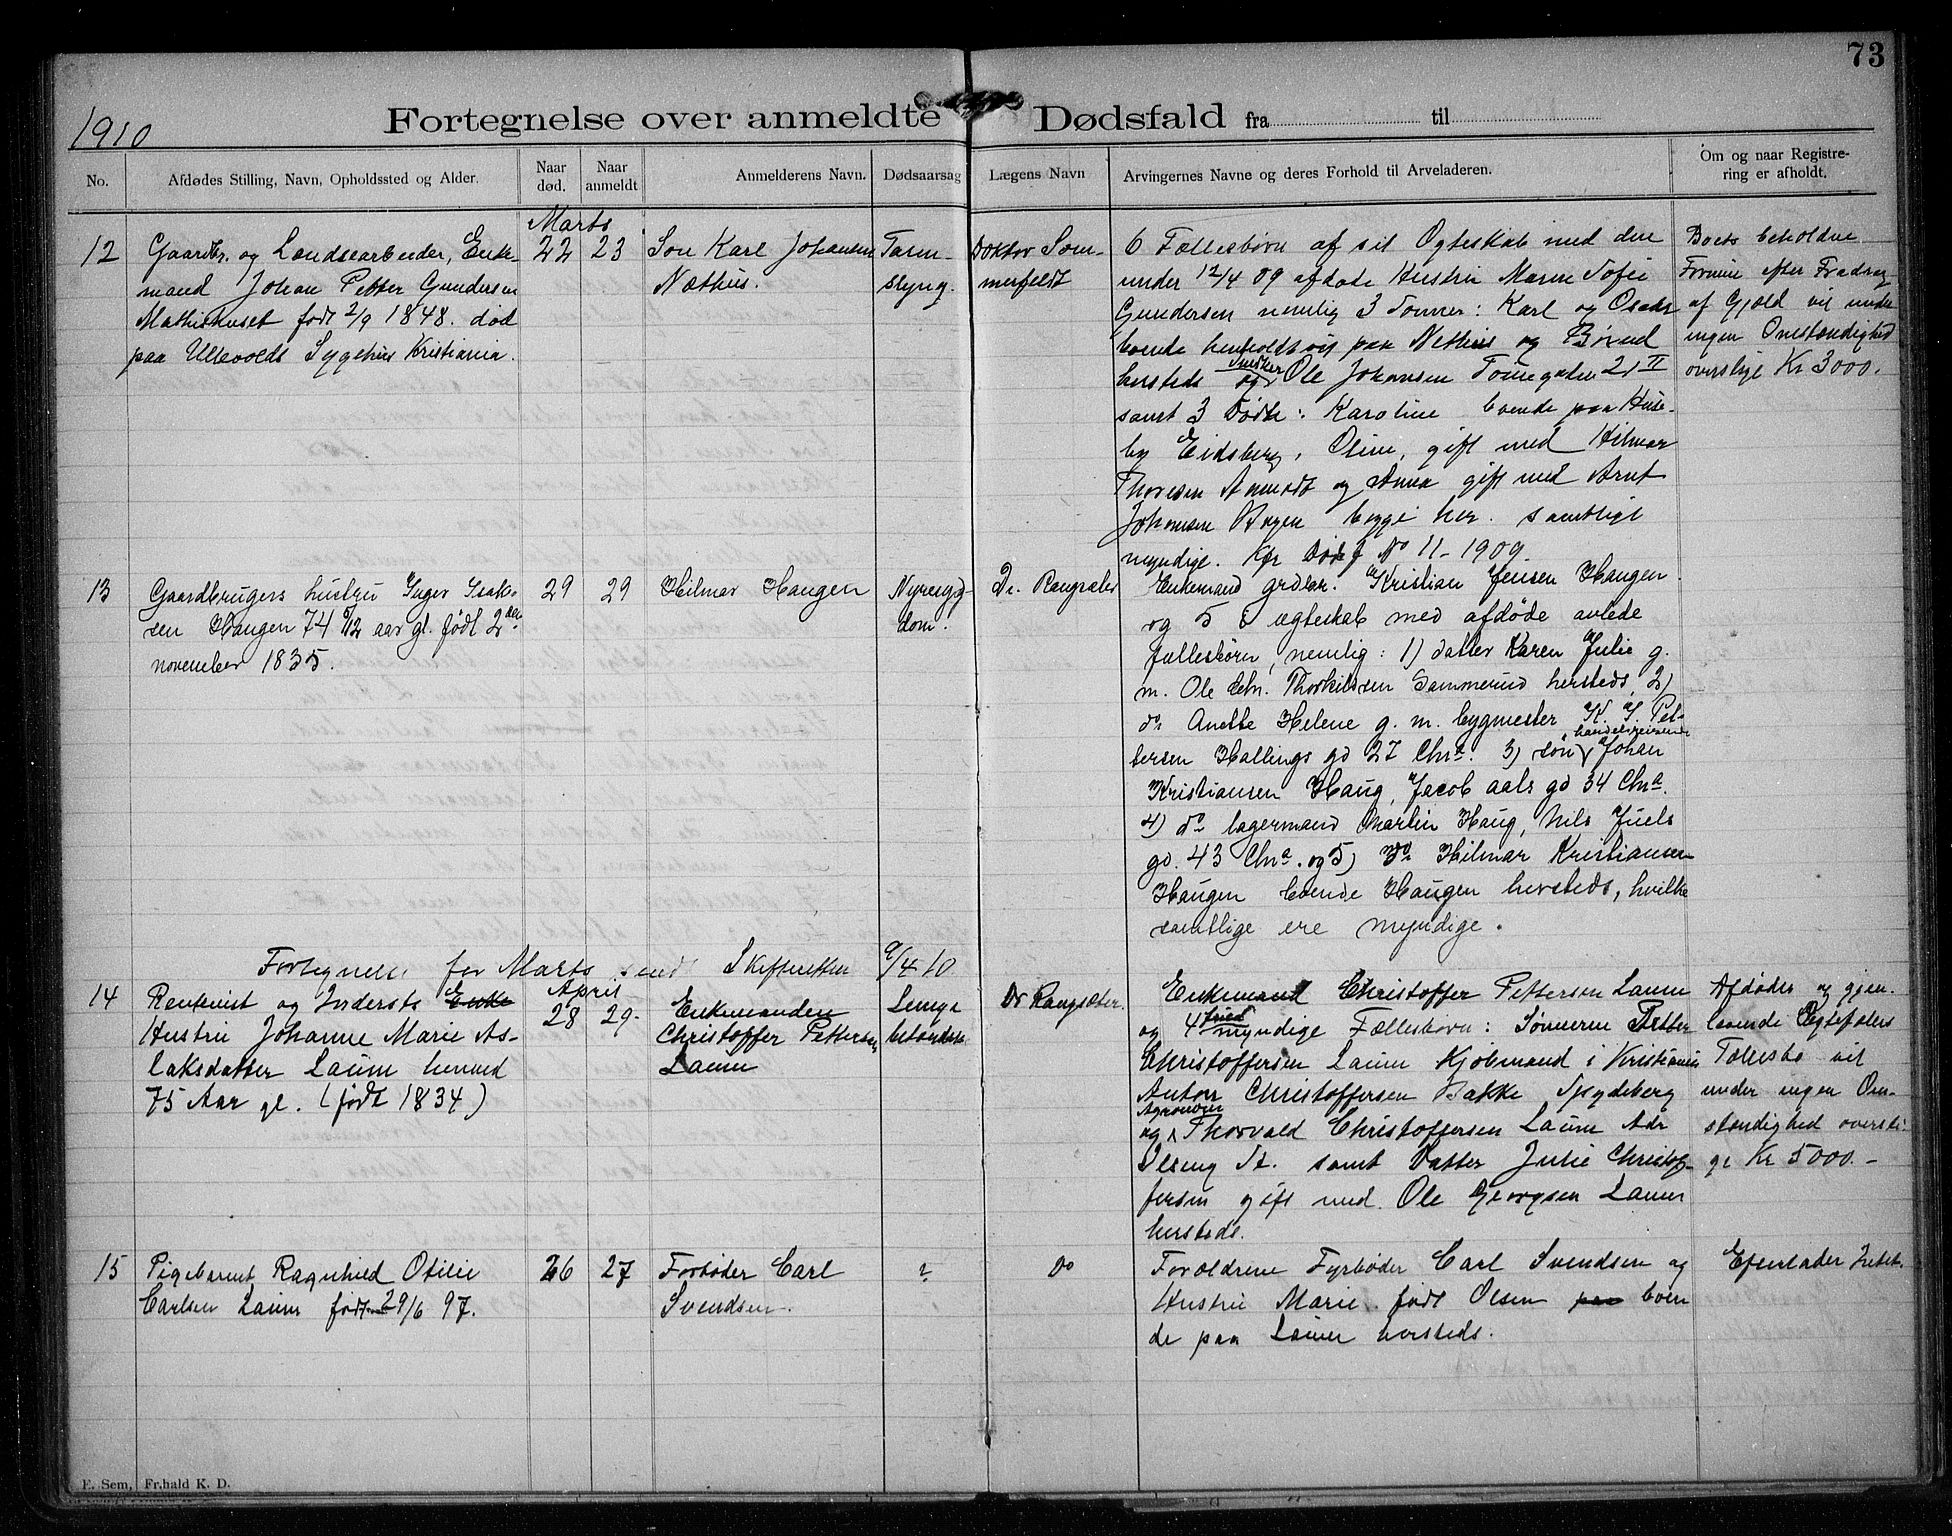 73
1910
Fortegnelse over anmeldte Dødsfald fra til
No.
Afdødes Stilling, Navn, Opholdssted og Alder.
Naar død.
Naar anmeldt
Anmelderens Navn.
Dødsaarsag
Lægens Navn
Arvingernes Navne og deres Forhold til Arveladeren.
Om og naar Registrering er afholdt.
Marts
12
Gaardbr. og Landsearbeider, Enke-
mand Johan Petter Gundersen
Mathishuset født 2/9 1848. død
paa Ullevolds Sygehus Kristiania.
22
23
Søn Karl Johansen
Næthus.
Tarm-
slyng.
Doktor Som-
merfeldt
6 Fællesbørn af sit Ægteskab med den
under 12/4 09 afdøde Hustru Maren Sofie
Gundersen nemlig 3 Sønner: Karl og Oskar
boende henholdsvis paa Næthus og Brend
hersteds og Snedker Ole Johansen Tomtegaden 21 II
samt 3 Døtre: Karoline boende paa Huse-
by Eidsberg, Oline, gift med Hilmar
Thoresen Aamodt og Anna gift med Arnt
Johansen Hagen begge her. samtlige
myndige. Kfr Dødsf No 11-1909.
Boets beholdne
Formue efter Fradrag
af Gjæld vil under
ingen Omstændighed
overstige Kr 3000.
13
Gaardbrugers hustru Inger Isak-
sen Haugen 74 5/12 aar gl. født 2den
november 1835.
29
29
Hilmar Haugen
Nyresyg-
dom.
Dr. Rangsæter
Enkemand grdbr. Kristian Jensen Haugen
og 5 i ægteskab med afdøde avlede
fællesbørn, nemlig: 1) datter Karen Julie g.
m. Ole Chr. Thorkildsen Sammerud hersteds, 2)
do Anette Helene g. m. bygmester K. J. Pet-
tersen Hallings gd 27 Chra. 3) søn handelsreisende Johan
Kristiansen Haug, Jacob aals gd 34 Chra.
4) do lagermand Martin Haug, Nils Juels
gd. 43 Chra. og 5) do Hilmar Kristiansen
Haugen boende Haugen hersteds, hvilke
samtlige ere myndige.
Fortegnelse for Marts sendt Skifteretten 9/4 10
April
14
Rentenist og Inderst Enke
Hustru Johanne Marie As-
laksdatter Laum herved
75 Aar gl. (født 1834)
28
29
Enkemanden
Christoffer Pettersen
Laum
Lunge
betændelse
Dr Rangsæter.
Enkemand Christoffer Pettersen Laum
og 4 myndige Fællesbørn: Sønnerne Petter
Christoffersen Laum Kjøbmand i Kristiania
Anton Christoffersen Bakke Spydeberg
og Agronom Thorvald Christoffersen Laum Adr
St. samt Datter Julie Christof-
fersen gift med Ole Georgsen Laum
hersteds.
Afdødes og gjen-
levende Ægtefælles
Fællesbo vil
under ingen Om-
stændighed oversti-
ge Kr 5000.-
15
Pigebarnet Ragnhild Otilie
Carlsen Laum født 29/6 97.
26
27
Forbøder Carl
Svendsen.
?
Do
Forældrene Fyrbøder Carl Svendsen og
Hustru Marie født Olsen paa boen
de paa Laum hersteds.
Efterlader Intet.
E. Sem, Fr.hald K. D.